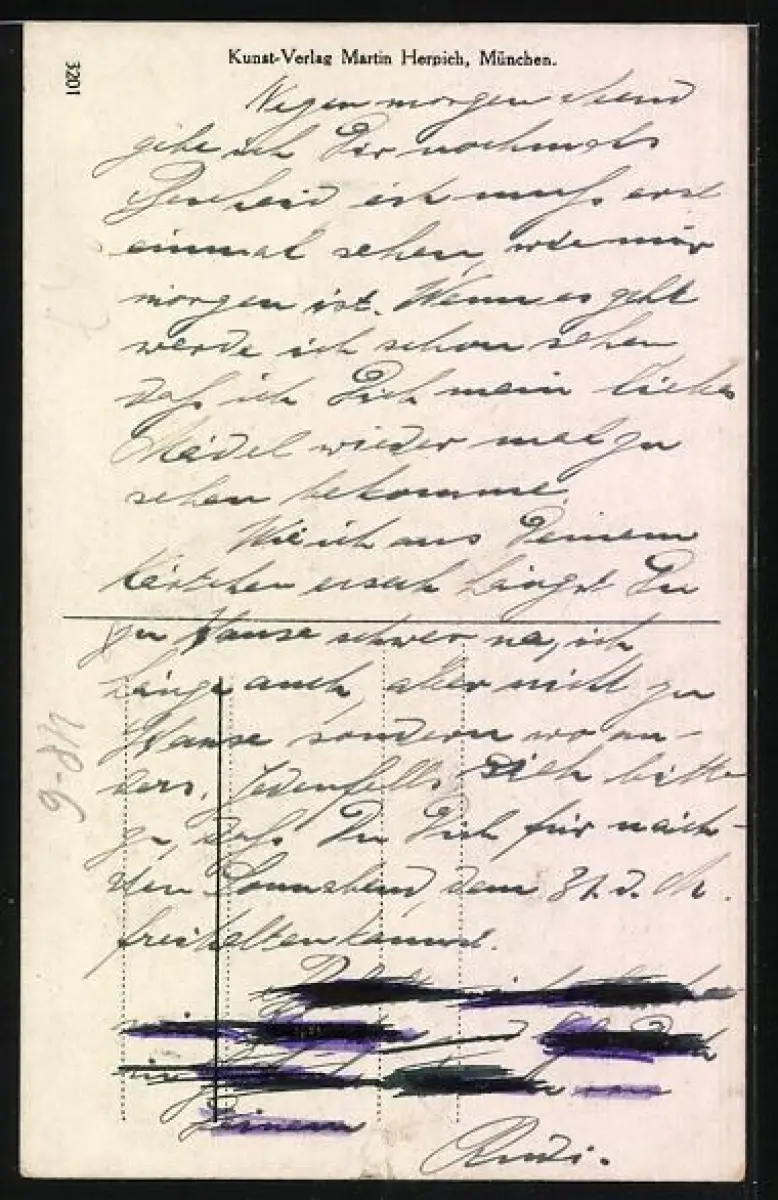 3201
Kunst-Verlag Martin Herpich, München.
Wegen morgen Abend
gebe ich Dir nochmals
Bescheid ich muß erst
einmal sehen, wie mir
morgen ist. Wenn es geht
werde ich schon sehen
daß ich Dich mein liebes
Mädel wieder mal zu
sehen bekomme.
Wie ich aus Deinem
Kärtchen ersah hängst Du
zu Hause schwer na, ich
hänge auch, aber nicht zu
Hause sondern wo an-
ders. Jedenfalls bitte
ja, daß Du Dich für näch-
sten Sonnabend, dem 31. d. M.
freihalten kannst.
Deinem
Rudi.
48-6